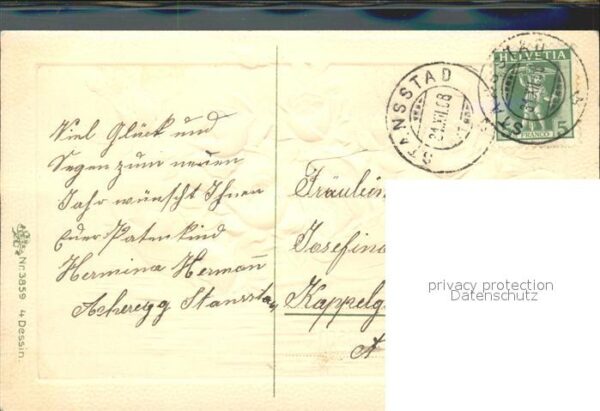 STANSSTAD
31.XII.08
HELVETIA
FRANCO
5
Viel Glück und
Segen zum neuen
Jahr wünscht Ihnen
Euer Patenkind
Hermina Hermann
Acheregg Stansstad
Fräulein
Josefina
Kappelg
privacy protection
Datenschutz
Nr. 3859 4 Dessin.